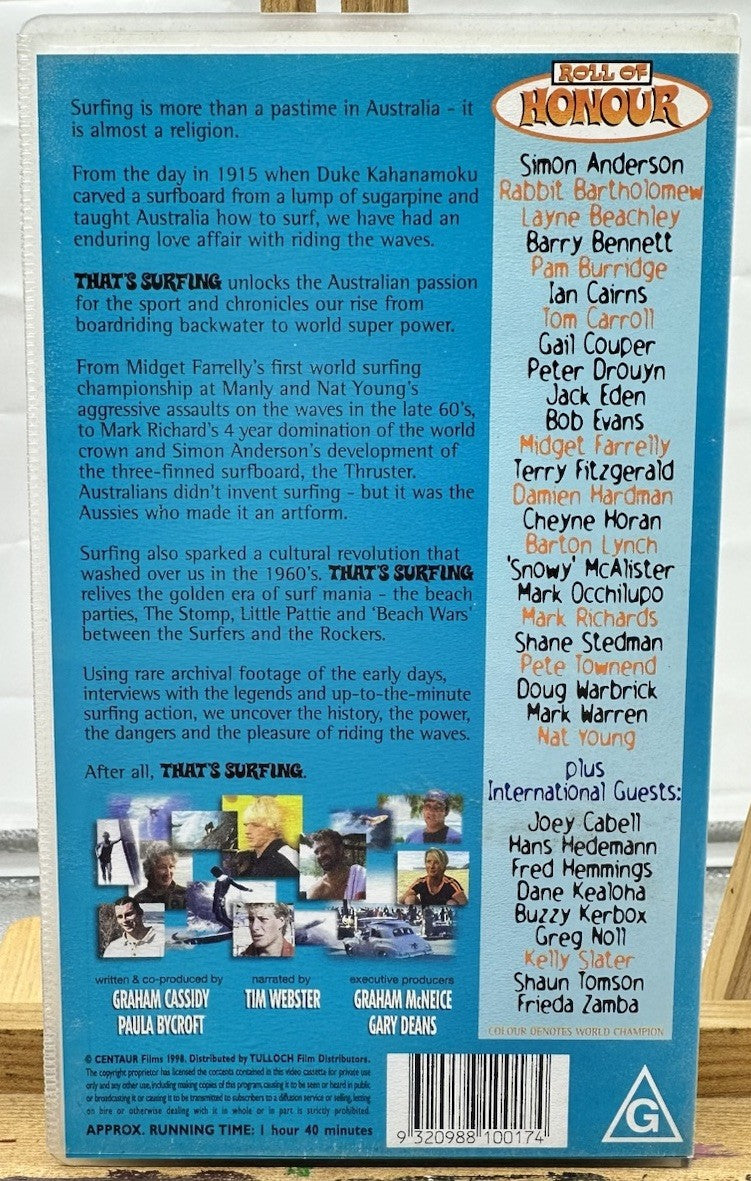 Surfing is more than a pastime in Australia - it
is almost a religion.
From the day in 1915 when Duke Kahanamoku
carved a surfboard from a lump of sugarpine and
taught Australia how to surf, we have had an
enduring love affair with riding the waves.
THAT'S SURFING unlocks the Australian passion
for the sport and chronicles our rise from
boardriding backwater to world super power.
From Midget Farrelly's first world surfing
championship at Manly and Nat Young's
aggressive assaults on the waves in the late 60's,
to Mark Richard's 4 year domination of the world
crown and Simon Anderson's development of
the three-finned surfboard, the Thruster.
Australians didn't invent surfing - but it was the
Aussies who made it an artform.
Surfing also sparked a cultural revolution that
washed over us in the 1960's. THAT'S SURFING
relives the golden era of surf mania - the beach
parties, The Stomp, Little Pattie and 'Beach Wars'
between the Surfers and the Rockers.
Using rare archival footage of the early days,
interviews with the legends and up-to-the-minute
surfing action, we uncover the history, the power,
the dangers and the pleasure of riding the waves.
After all, THAT'S SURFING.
written & co-produced by
GRAHAM CASSIDY
PAULA BYCROFT
narrated by
TIM WEBSTER
executive producers
GRAHAM McNEICE
GARY DEANS
© CENTAUR Films 1998. Distributed by TULLOCH Film Distributors.
The copyright proprietor has licensed the contents contained in this video cassette for private use
only and any other use, including making copies of this program, causing it to be seen or heard in public
or broadcasting it or causing it to be transmitted to subscribers to a diffusion service or selling, letting
on hire or otherwise dealing with it in whole or in part is strictly prohibited.
APPROX. RUNNING TIME: 1 hour 40 minutes
ROLL OF
HONOUR
Simon Anderson
Rabbit Bartholomew
Layne Beachley
Barry Bennett
Pam Burridge
Ian Cairns
Tom Carroll
Gail Couper
Peter Drouyn
Jack Eden
Bob Evans
Midget Farrelly
Terry Fitzgerald
Damien Hardman
Cheyne Horan
Barton Lynch
'Snowy' McAlister
Mark Occhilupo
Mark Richards
Shane Stedman
Pete Townend
Doug Warbrick
Mark Warren
Nat Young
plus
International Guests:
Joey Cabell
Hans Hedemann
Fred Hemmings
Dane Kealoha
Buzzy Kerbox
Greg Noll
Kelly Slater
Shaun Tomson
Frieda Zamba
COLOUR DENOTES WORLD CHAMPION
9 320988 100174
G